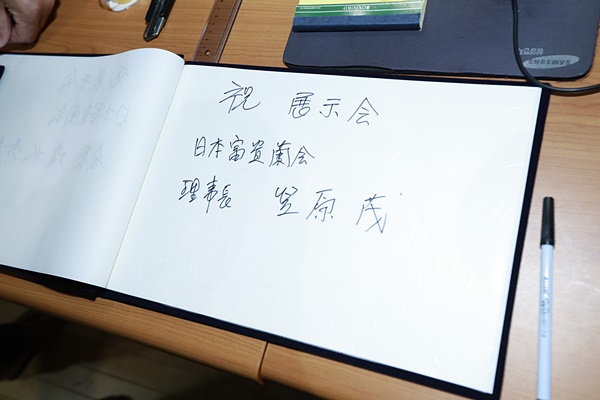 祝 展示会
日本富貴蘭会
理事長 笠原 茂
SAMSUNG